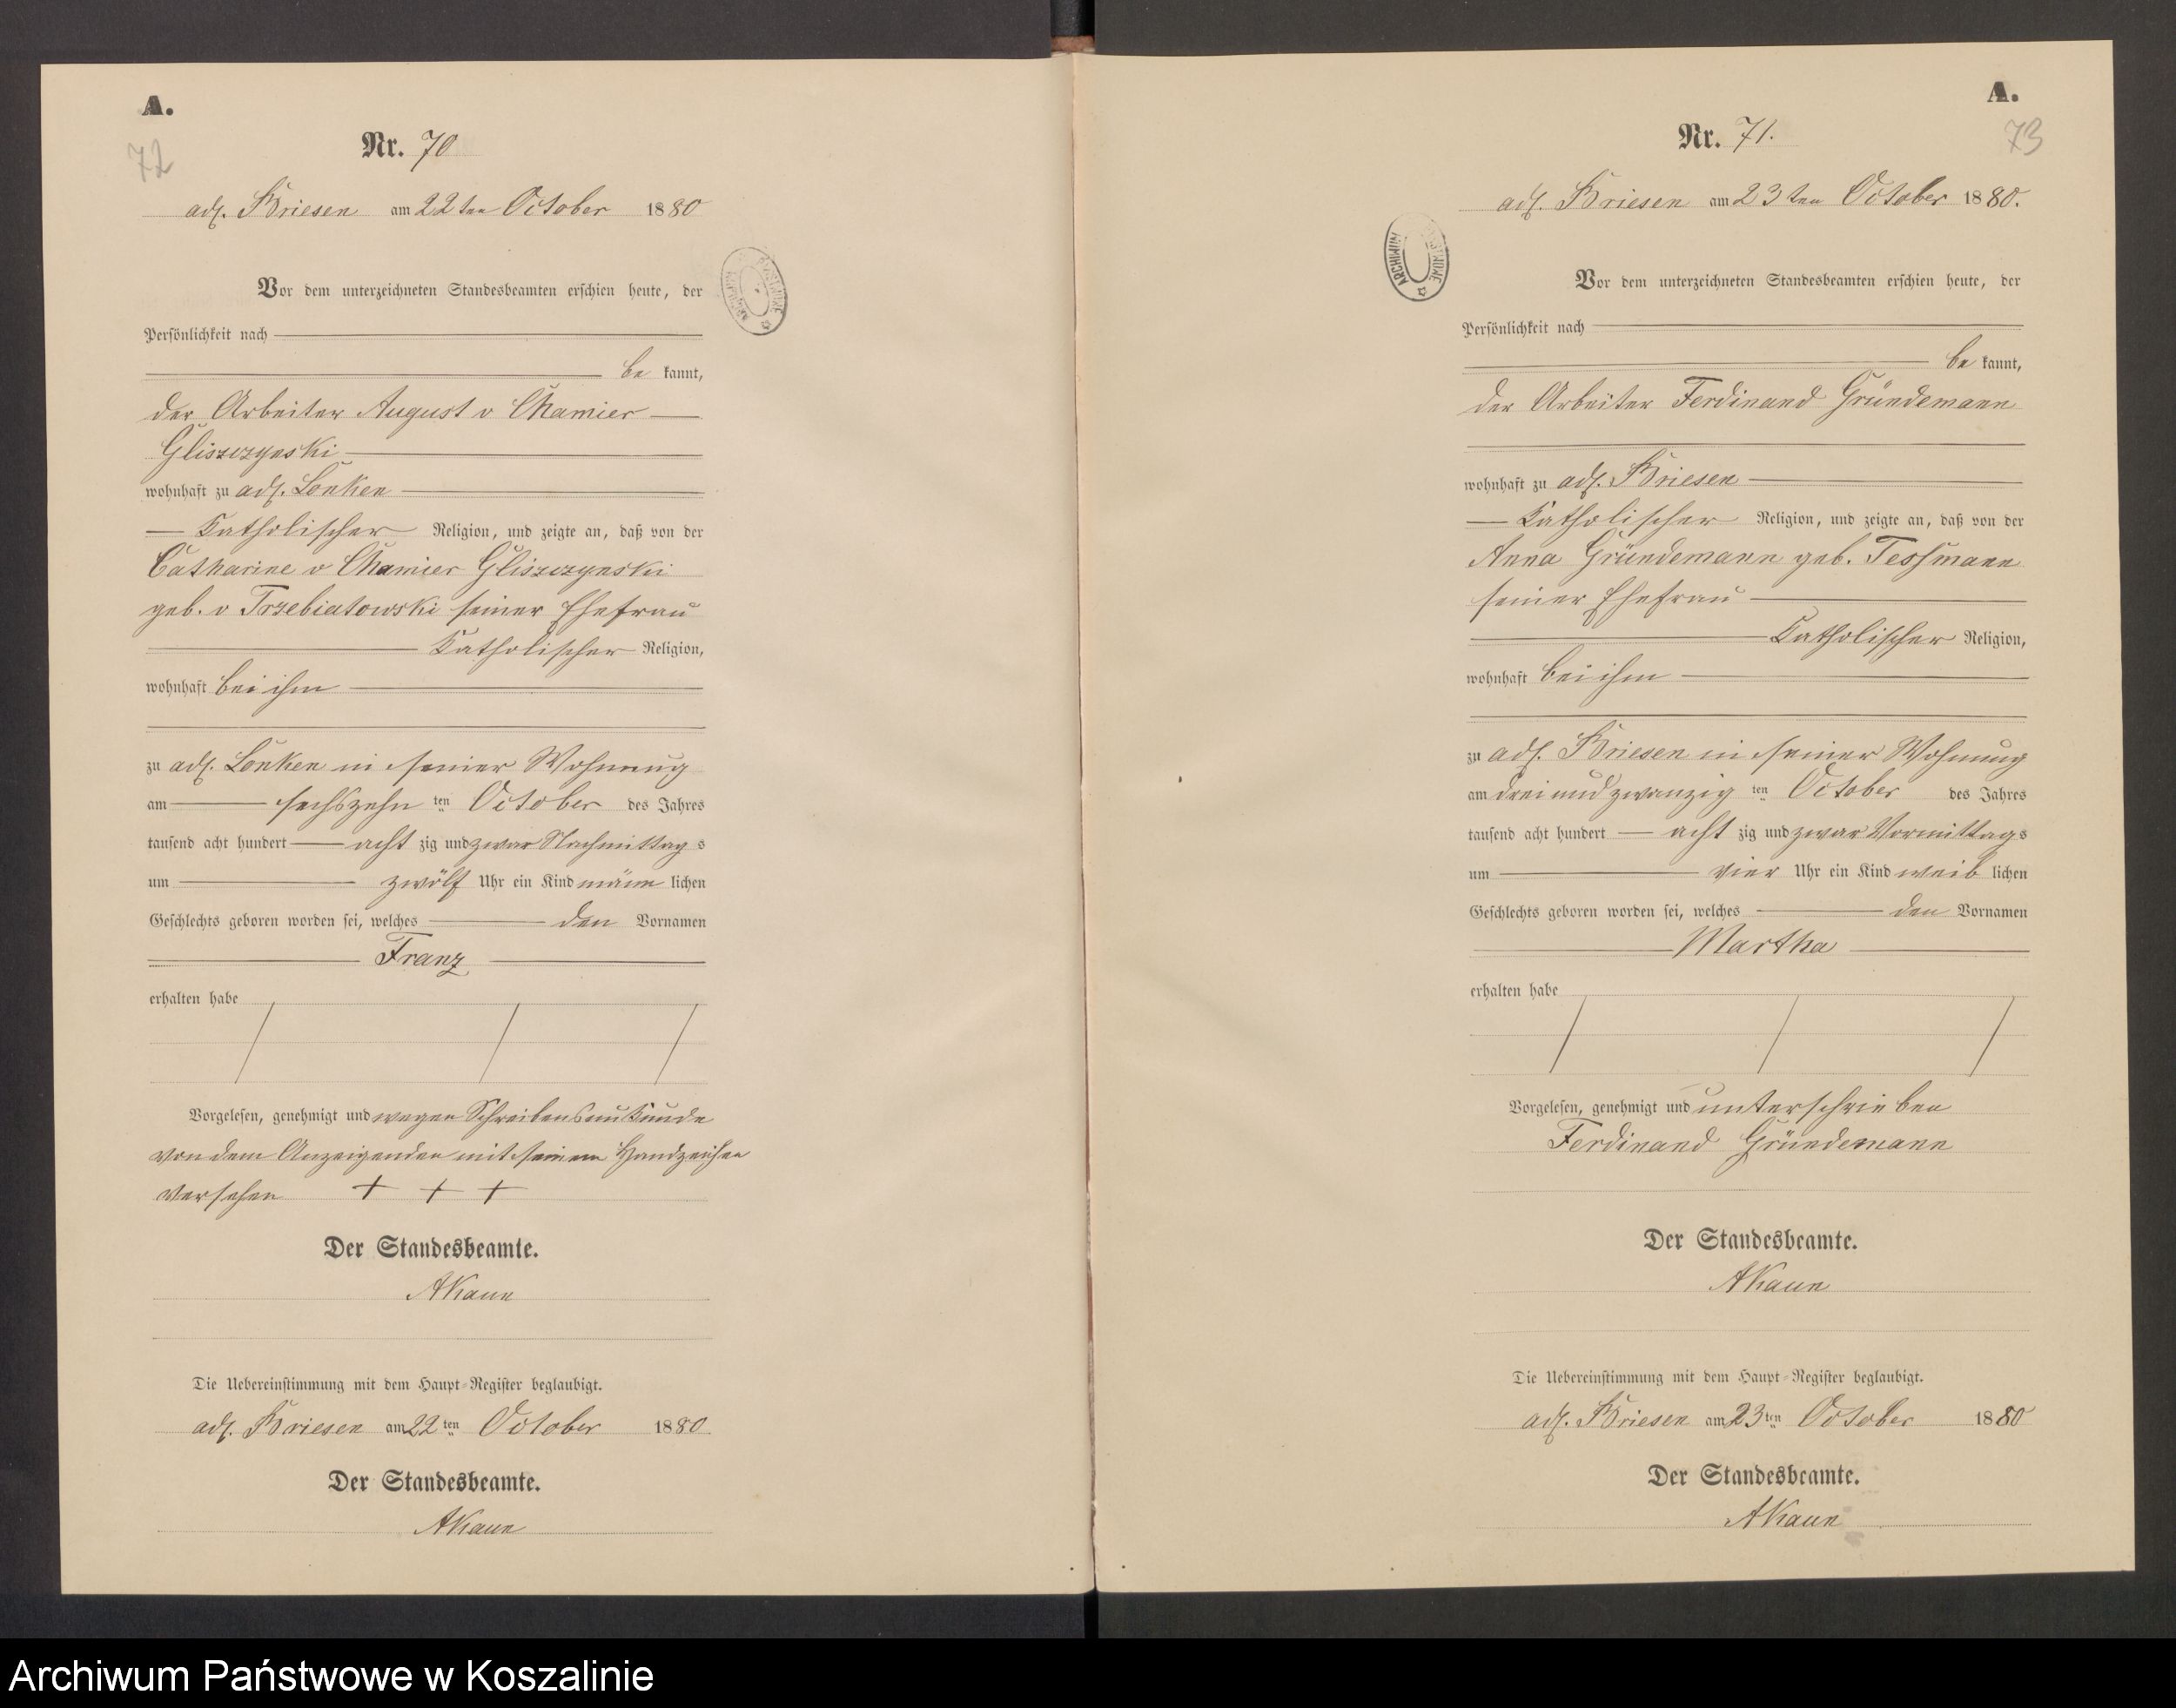 A.
72
Nr. 70
adl. Briesen am 22ten October 1880
Vor dem unterzeichneten Standesbeamten erschien heute, der
Persönlichkeit nach
be kannt,
der Arbeiter August v Chamier
Gliszczynski
wohnhaft zu adl. Lonken
Katholischer Religion, und zeigte an, daß von der
Catharine v Chamier Gliszczynski
geb. v Trzebiatowski seiner Ehefrau
Katholischer Religion,
wohnhaft bei ihm
zu adl. Lonken in seiner Wohnung
am sechszehn ten October des Jahres
tausend acht hundert acht zig und zwar Nachmittag s
um zwölf Uhr ein Kind männ lichen
Geschlechts geboren worden sei, welches den Vornamen
Franz
erhalten habe
Vorgelesen, genehmigt und wegen Schreibensunkunde
von dem Anzeigenden mit seinem Handzeichen
versehen + + +
Der Standesbeamte.
AKaun
Die Uebereinstimmung mit dem Haupt-Register beglaubigt.
adl. Briesen am 22ten October 1880
Der Standesbeamte.
AKaun
A.
73
Nr. 71.
adl. Briesen am 23ten October 1880.
ARCHIWUM
Vor dem unterzeichneten Standesbeamten erschien heute, der
Persönlichkeit nach
be kannt,
der Arbeiter Ferdinand Gründemann
wohnhaft zu adl. Briesen
Katholischer Religion, und zeigte an, daß von der
Anna Gründemann geb. Tessmann
seiner Ehefrau
Katholischer Religion,
wohnhaft bei ihm
zu adl. Briesen in seiner Wohnung
am dreiundzwanzig ten October des Jahres
tausend acht hundert acht zig und zwar Vormittag s
um vier Uhr ein Kind weib lichen
Geschlechts geboren worden sei, welches den Vornamen
Martha
erhalten habe
Vorgelesen, genehmigt und unterschrieben
Ferdinand Gründemann
Der Standesbeamte.
AKaun
Die Uebereinstimmung mit dem Haupt-Register beglaubigt.
adl. Briesen am 23ten October 1880
Der Standesbeamte.
AKaun
Archiwum Państwowe w Koszalinie